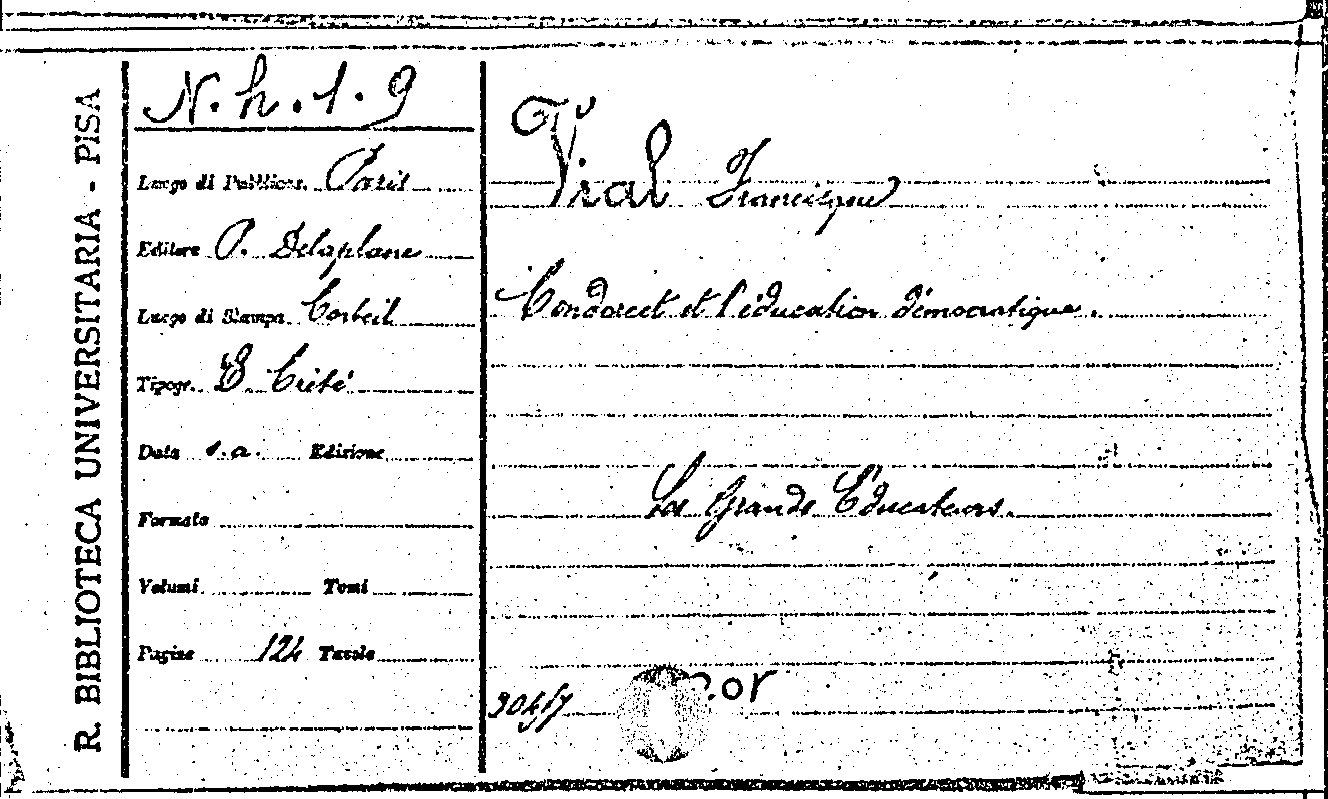 R. BIBLIOTECA UNIVERSITARIA - PISA
N.h.1.9
Luogo di Pubblicaz. Paris
Editore P. Delaplane
Luogo di Stampa Corbeil
Tipogr. É Crété
Data s.a. Edizione
Formato
Volumi Tomi
Pagine 124 Tavole
Vial Francisque
Condorcet et l'éducation démocratique.
Les Grands Éducateurs.